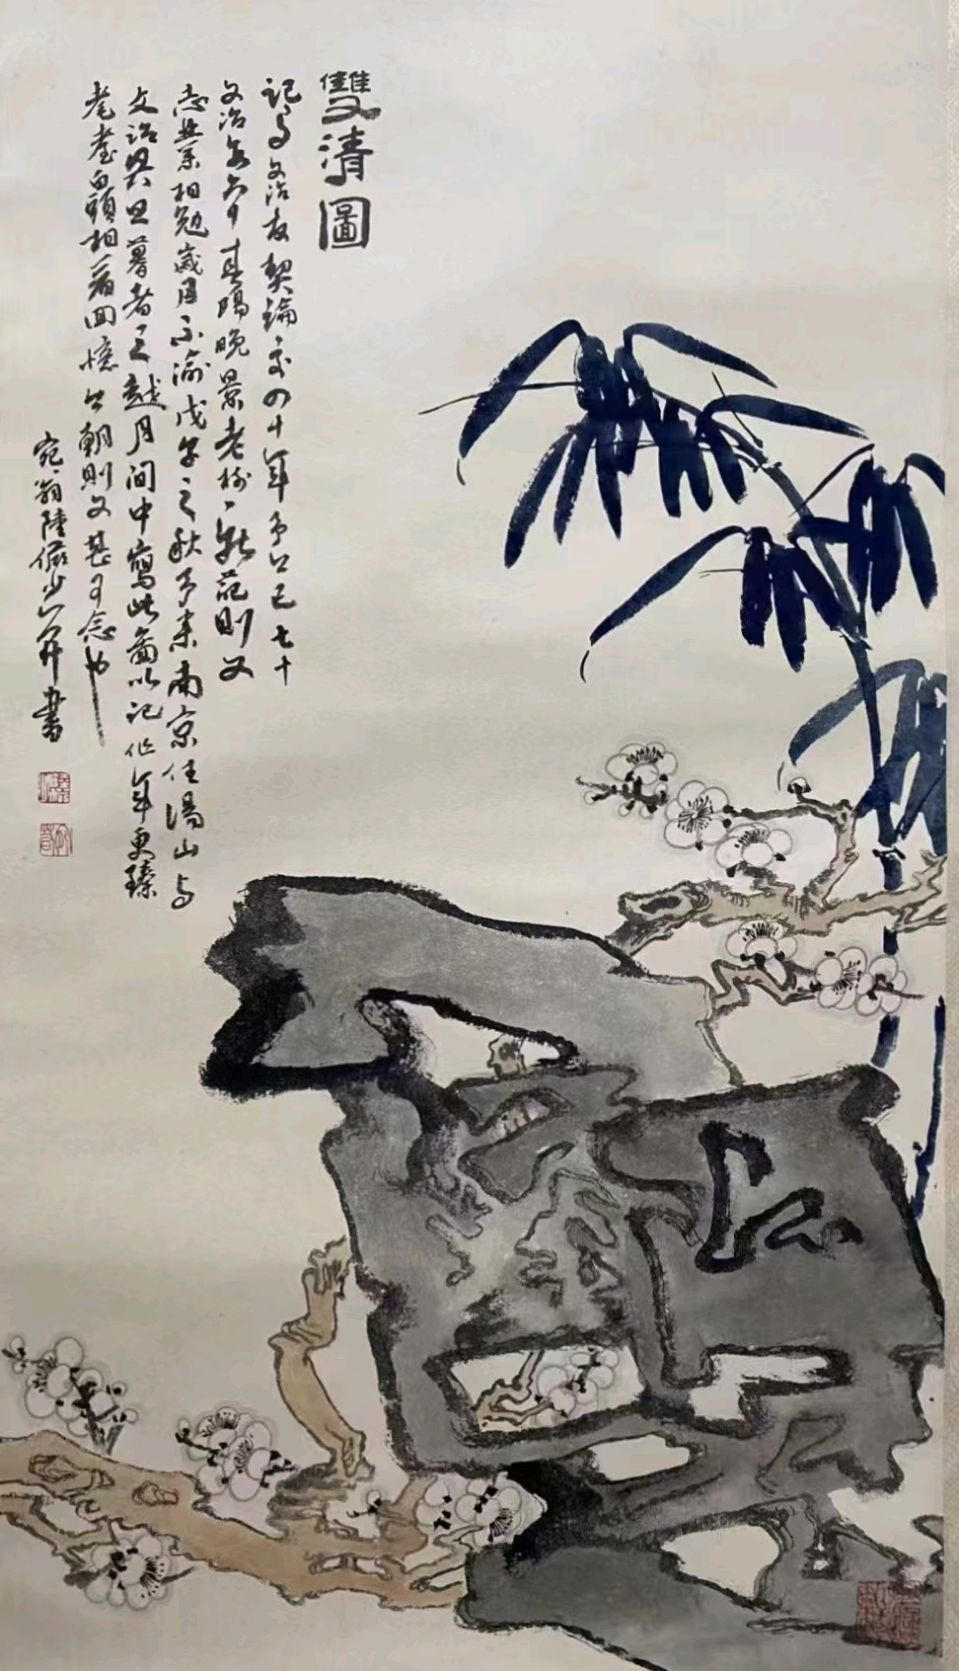 雙清圖
記與文治友契論交四十年予今已七十
文治亦六十 夕陽晚景老樹著花則又
志業相勉歲月不渝戊午之秋予來南京住湯山與
文治與旦暮者三越月間中寫此圖以記他年更臻
耄耋白頭相看回憶今朝則又甚可念也
宛翁陸儼少并書